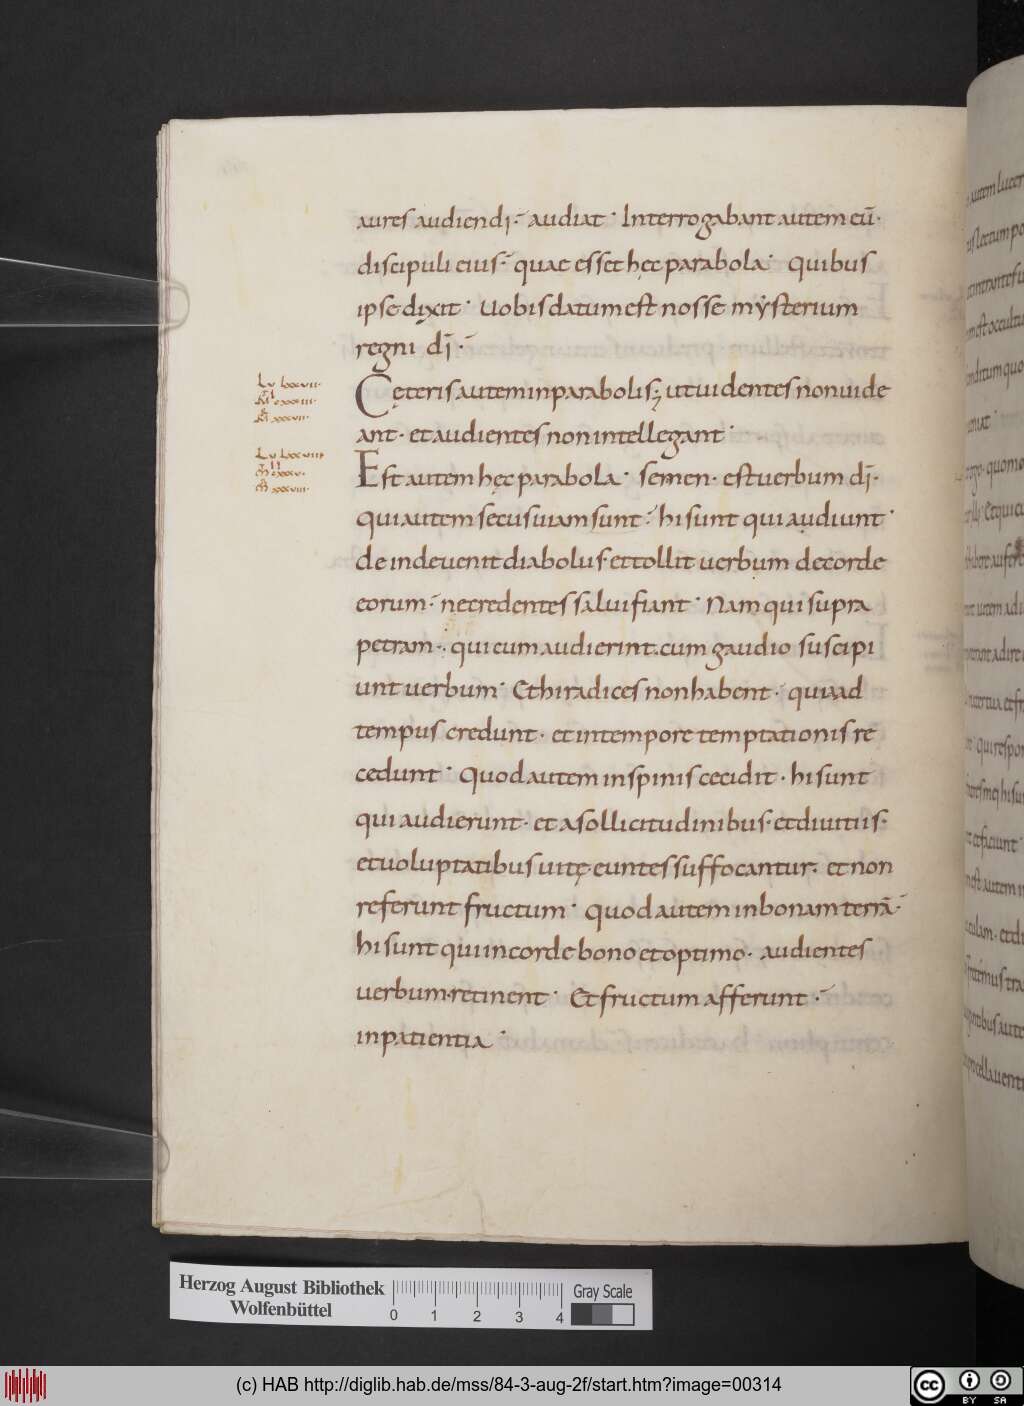 aures audiendi· audiat· Interrogabant autem eū·
discipuli eius· quae esset hęc parabola· quibus
ipse dixit· Uobis datum est nosse mẏsterium
regni dī·
Cęteris autem in parabolis; ut uidentes non uide
ant· et audientes non intellegant·
Est autem hęc parabola· semen· est uerbum dī·
qui autem secus uiam sunt· hi sunt qui audiunt·
deinde uenit diabolus· et tollit uerbum de corde
eorum· ne credentes salui fiant· Nam qui supra
petram· qui cum audierint· cum gaudio suscipi
unt uerbum· Et hi radices non habent· quia ad
tempus credunt· et in tempore temptationis re
cedunt· Quod autem in spinis cecidit· hi sunt
qui audierunt· et a sollicitudinibus· et diuitiis·
et uoluptatibus uitę· euntes suffocantur· et non
referunt fructum· quod autem in bonam terrā·
hi sunt qui in corde bono et optimo· audientes
uerbum· retinent· Et fructum afferunt·
in patientia·
Herzog August Bibliothek
Wolfenbüttel
0 1 2 3 4
Gray Scale
(c) HAB http://diglib.hab.de/mss/84-3-aug-2f/start.htm?image=00314
cc BY SA